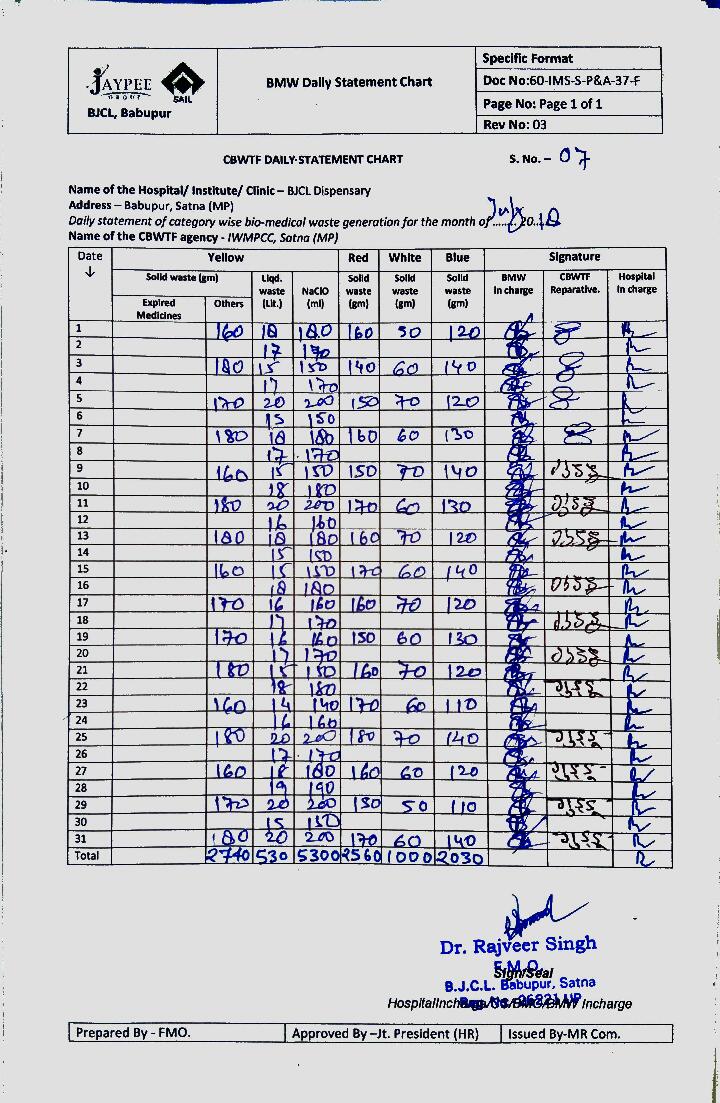 JAYPEE
GROUP
SAIL
BJCL, Babupur
BMW Daily Statement Chart
Specific Format
Doc No:60-IMS-S-P&A-37-F
Page No: Page 1 of 1
Rev No: 03
CBWTF DAILY-STATEMENT CHART
S. No. – 07
Name of the Hospital/ Institute/ Clinic – BJCL Dispensary
Address – Babupur, Satna (MP)
Daily statement of category wise bio-medical waste generation for the month of July 2018
Name of the CBWTF agency - IWMPCC, Satna (MP)
Date ↓ Yellow Red White Blue Signature
Solid waste (gm) Liqd. waste (Lit.) NaClO (ml) Solid waste (gm) Solid waste (gm) Solid waste (gm) BMW In charge CBWTF Reparative. Hospital In charge
Expired Medicines Others
1 160 18 180 160 50 120
2 17 170
3 180 15 150 140 60 140
4 17 170
5 170 20 200 150 70 120
6 15 150
7 180 18 180 160 60 130
8 17 170
9 160 15 150 150 70 140
10 18 180
11 180 20 200 170 60 130
12 16 160
13 180 18 180 160 70 120
14 15 150
15 160 15 150 170 60 140
16 18 180
17 170 16 160 160 70 120
18 17 170
19 170 16 160 150 60 130
20 17 170
21 180 15 150 160 70 120
22 18 180
23 160 14 140 170 60 110
24 16 160
25 180 20 200 180 70 140
26 17 170
27 160 18 180 160 60 120
28 19 190
29 170 20 200 150 50 110
30 15 150
31 180 20 200 170 60 140
Total 2740 530 5300 2560 1000 2030
Dr. Rajveer Singh
F.M.O.
Sign/Seal
B.J.C.L. Babupur, Satna
Hospital Incharge
Incharge
Prepared By - FMO.
Approved By –Jt. President (HR)
Issued By-MR Com.